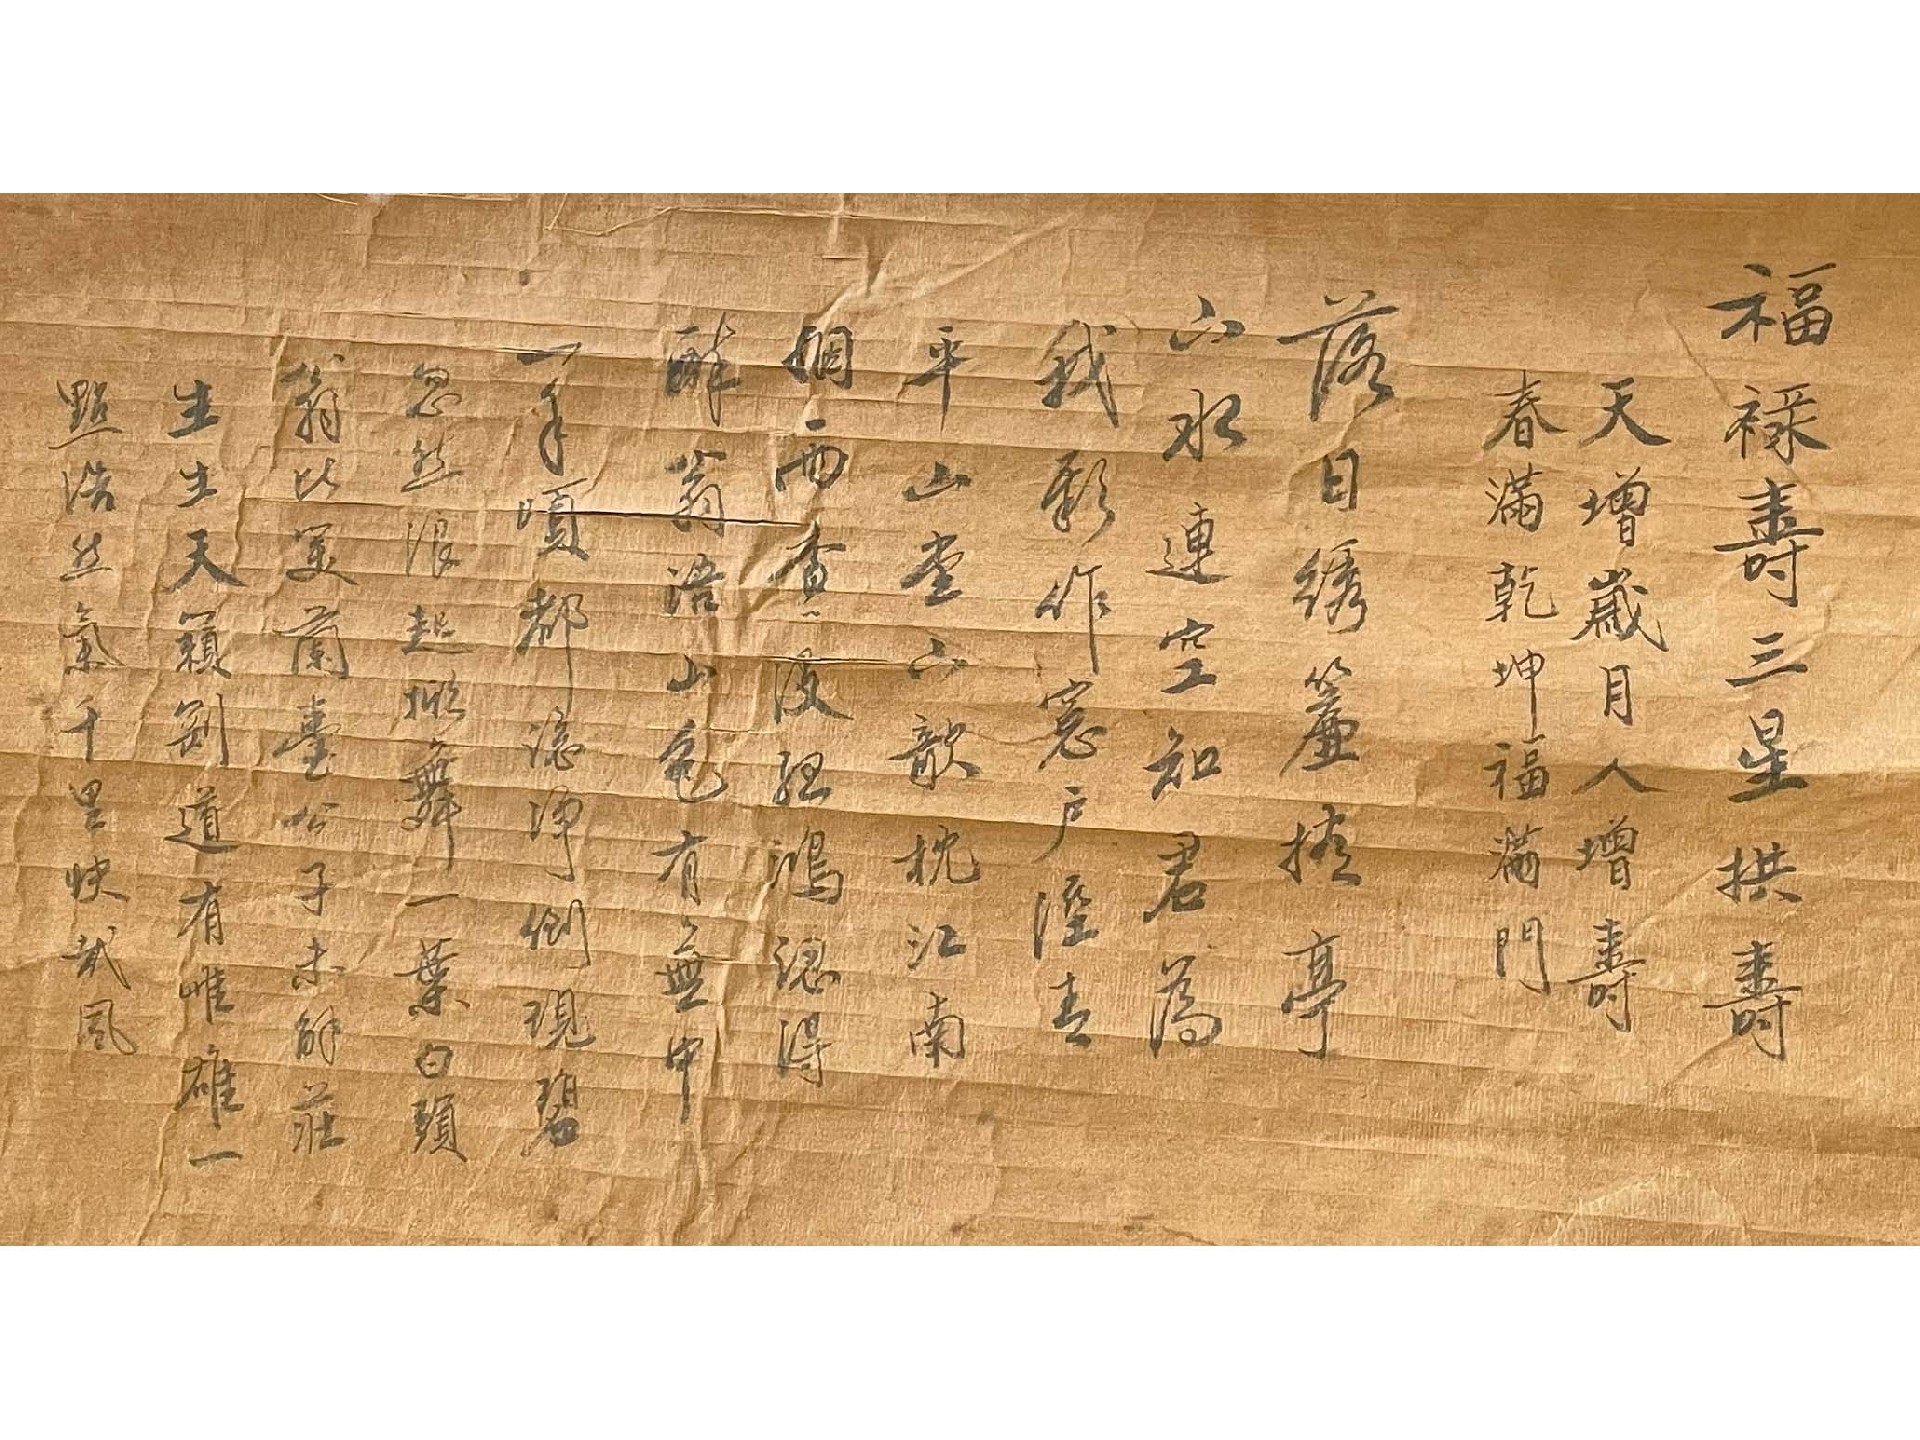 福祿壽三星拱壽
天增歲月人增壽
春滿乾坤福滿門
落日綉簾捲亭
下水連空知君為
我新作窓戶溼青
平山堂下欹枕江南
烟雨杳〻沒孤鴻認得
醉翁語山色有無中
一千頃都淨倒現碧
忽然浪起掀舞一葉白頭
翁比笑蘭臺公子未解莊
生生天籟剛道有唯雄一
點浩然氣千里快哉風